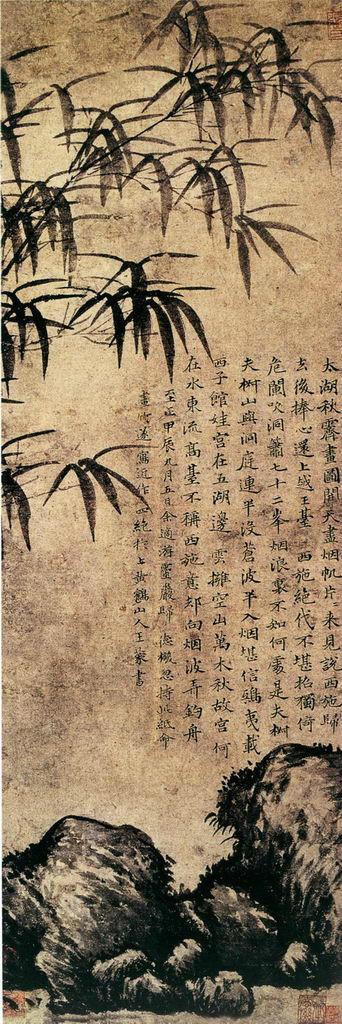 太湖秋霽畫圖開天盡烟帆片片來見說西施歸
去後捧心還上感王臺 西施絕代不堪招獨倚
危闌吹洞簫七十二峰烟浪裏不知何處是夫椒
夫椒山與洞庭連半沒蒼波半入烟堪信鴟夷載
西子館娃宮在五湖邊 雲擁空山萬木秋故宮何
在水東流高臺不稱西施意却向烟波弄釣舟
至正甲辰九月五日余適游靈巖歸 德機忽持此紙命
畫竹遂寫近作四絕於上黃鶴山人王蒙書